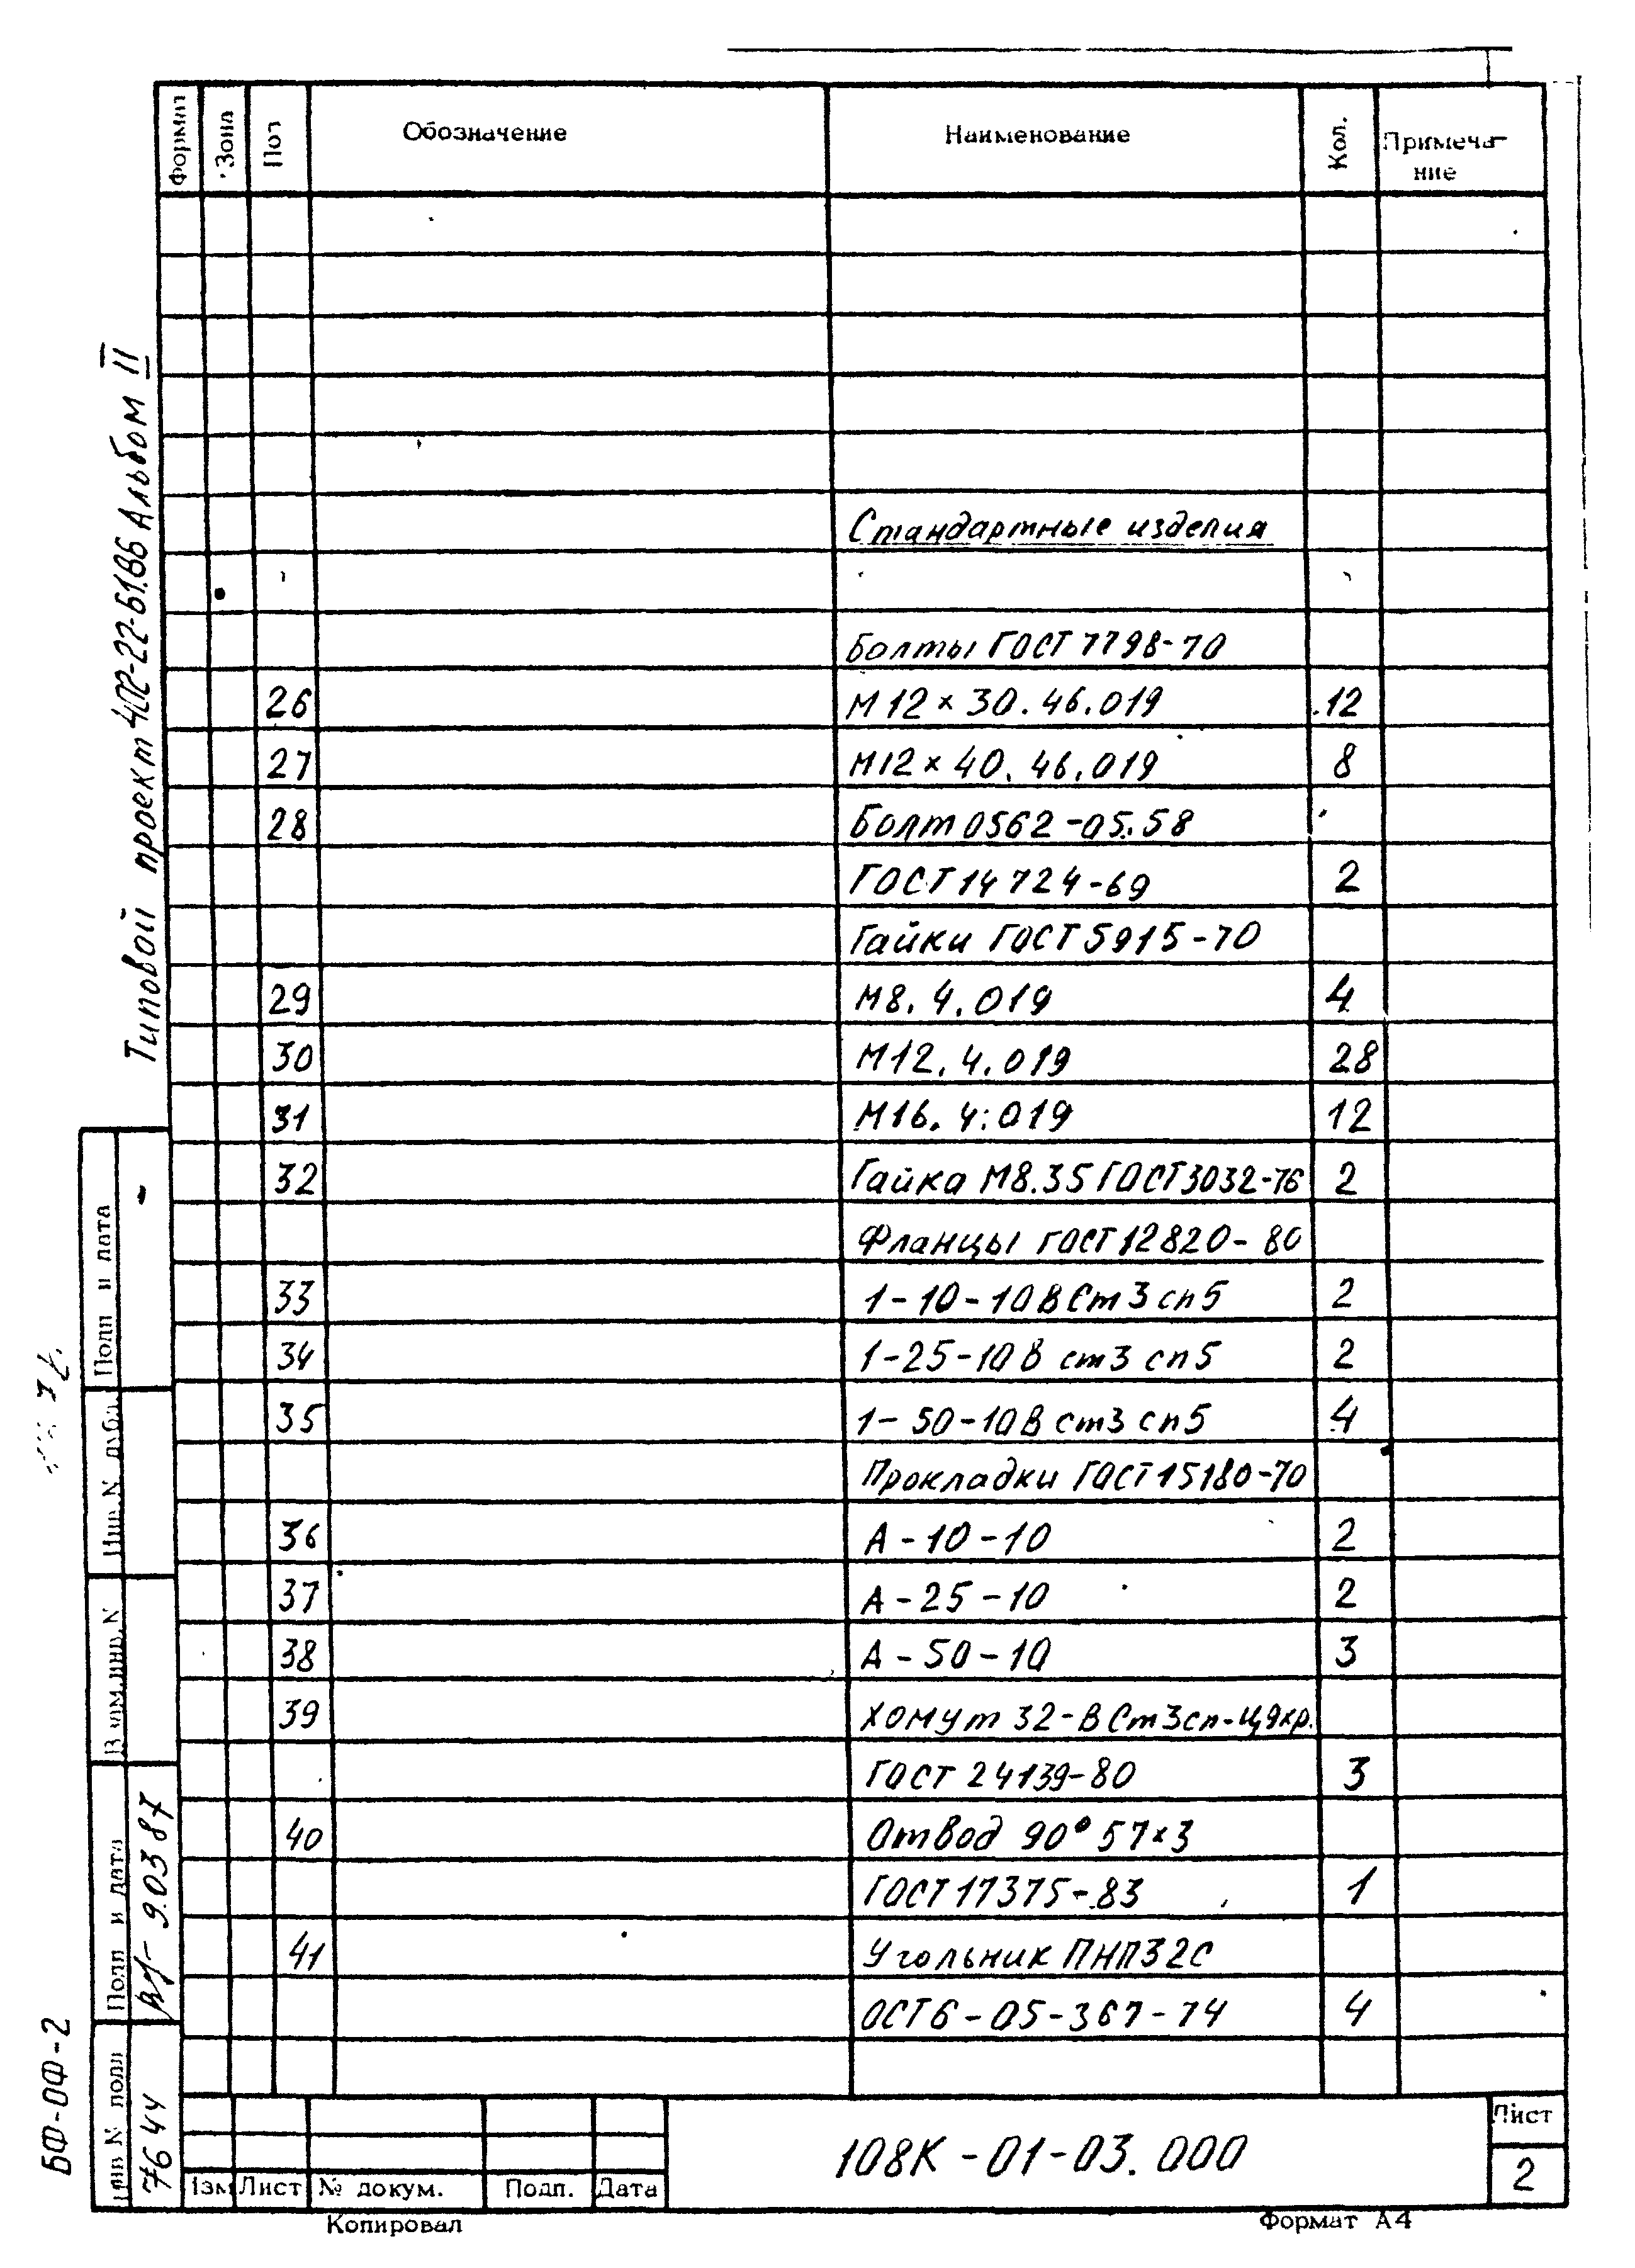 Формат Зона Поз Обозначение Наименование Кол. Примеча-
ние
Стандартные изделия
Болты ГОСТ 7798-70
26 М12×30.46.019 12
27 М12×40.46.019 8
28 Болт 0562-05.58
ГОСТ 14724-69 2
Гайки ГОСТ 5915-70
29 М8.4.019 4
30 М12.4.019 28
31 М16.4.019 12
32 Гайка М8.35 ГОСТ 3032-76 2
Фланцы ГОСТ 12820-80
33 1-10-10 В Ст3 сп5 2
34 1-25-10 В ст3 сп5 2
35 1-50-10 В ст3 сп5 4
Прокладки ГОСТ 15180-70
36 А-10-10 2
37 А-25-10 2
38 А-50-10 3
39 Хомут 32-ВСт3сп-Ц9хр.
ГОСТ 24139-80 3
40 Отвод 90° 57×3
ГОСТ 17375-83 1
41 Угольник ПНП32С
ОСТ6-05-367-74 4
Типовой проект 402-22-61.86 Альбом II
Подп и дата
Инв. N дубл
Взам.инв. N
Подп и дата 9.03 87
Инв N подл 7644
БФ-ОФ-2
Изм Лист № докум. Подп. Дата
108К-01-03.000
Лист
2
Копировал
Формат А4